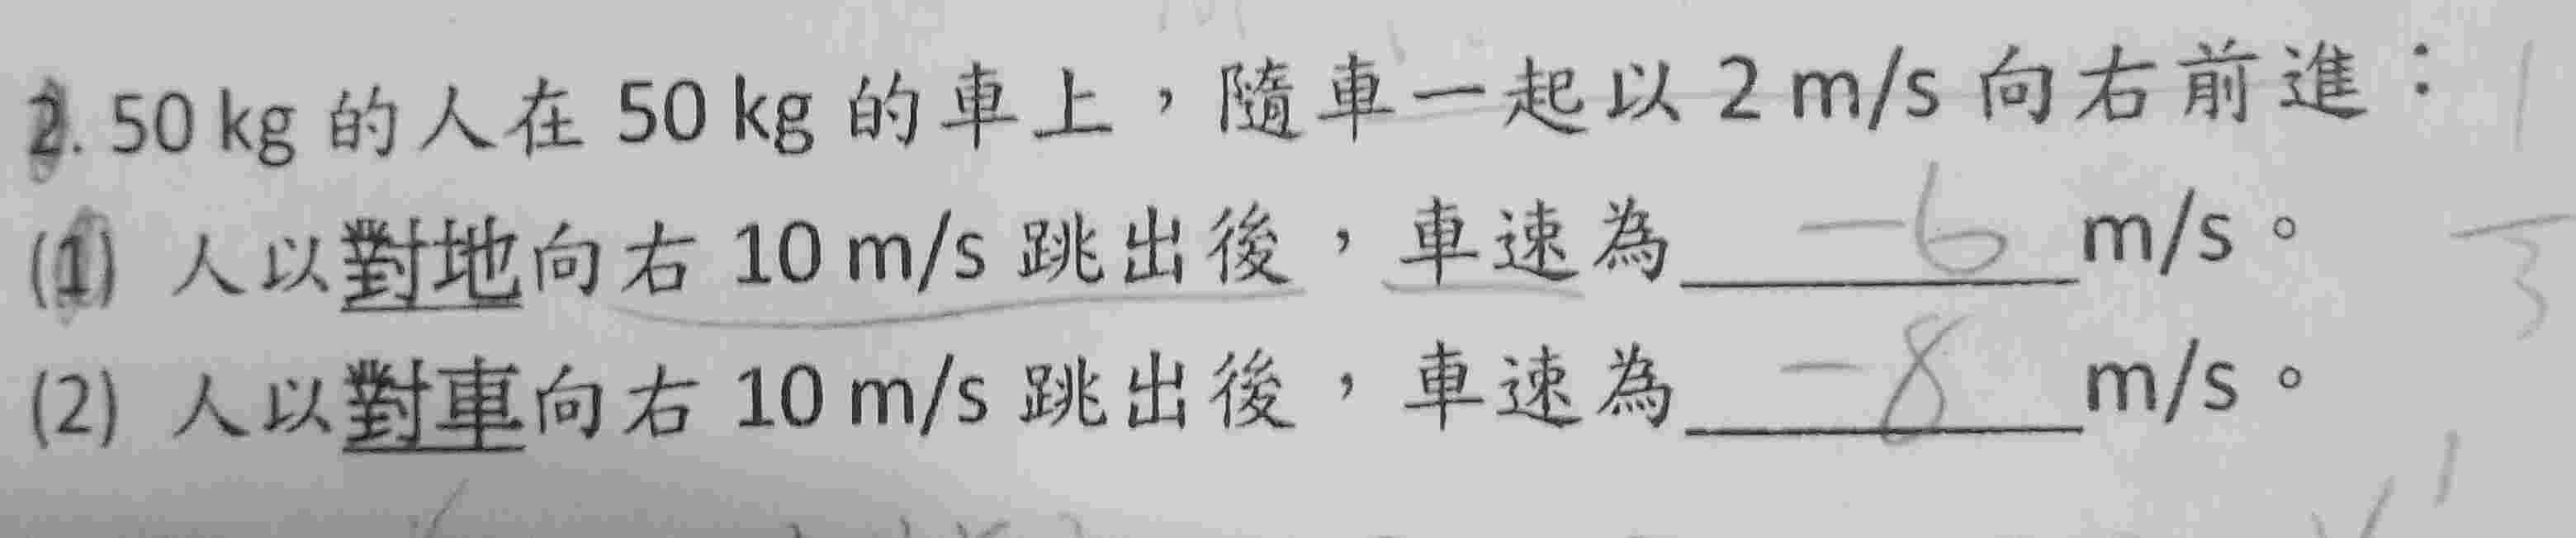 2. 50 kg 的人在 50 kg 的車上，隨車一起以 2 m/s 向右前進：
(1) 人以對地向右 10 m/s 跳出後，車速為 -6 m/s。
(2) 人以對車向右 10 m/s 跳出後，車速為 -8 m/s。